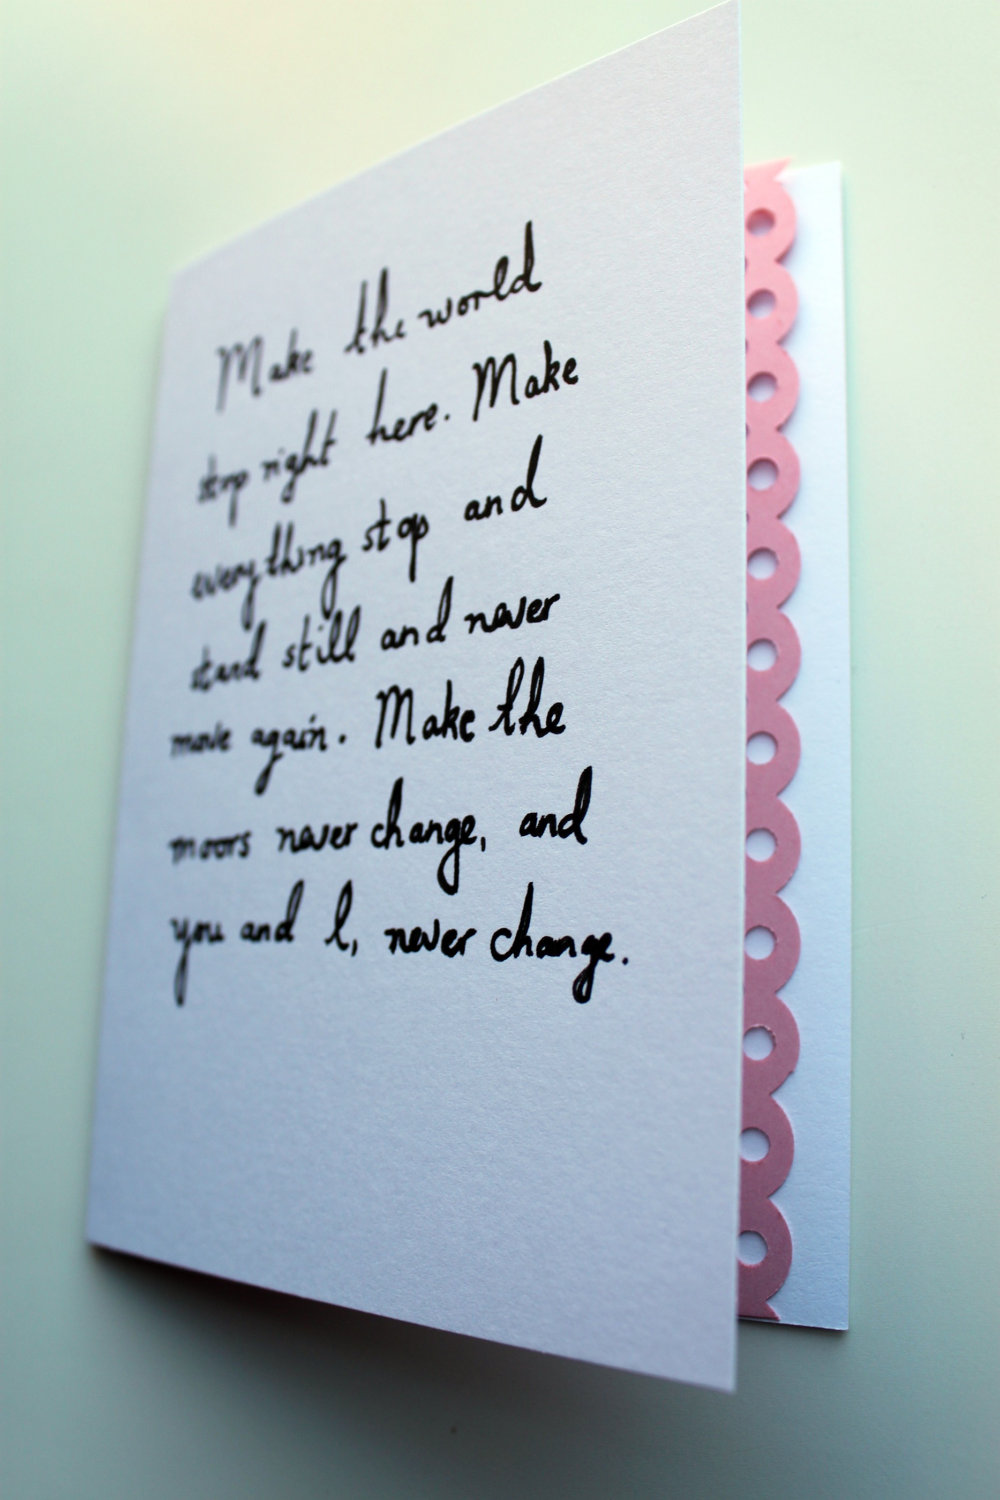 Make the world
stop right here. Make
everything stop and
stand still and never
move again. Make the
moors never change, and
you and I, never change.